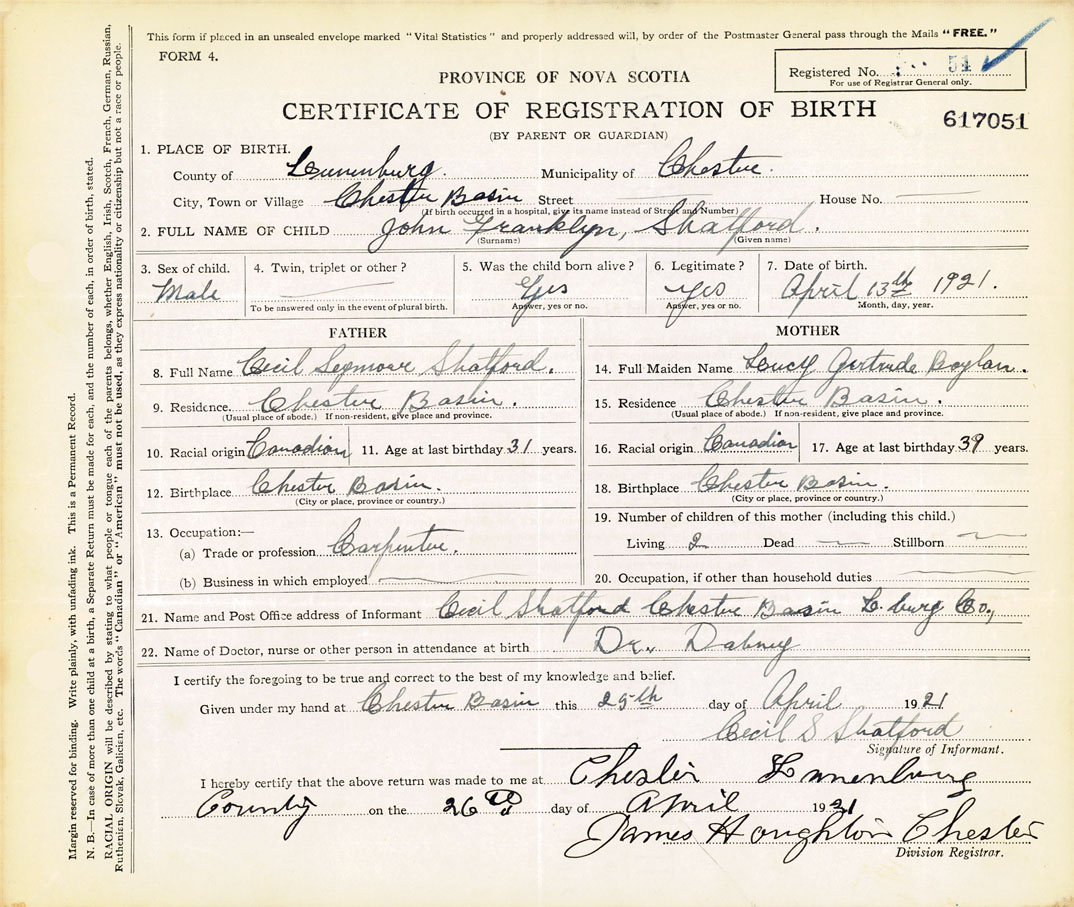 This form if placed in an unsealed envelope marked "Vital Statistics" and properly addressed will, by order of the Postmaster General pass through the Mails "FREE."
FORM 4.
PROVINCE OF NOVA SCOTIA
Registered No. 51
For use of Registrar General only.
CERTIFICATE OF REGISTRATION OF BIRTH
617051
(BY PARENT OR GUARDIAN)
1. PLACE OF BIRTH.
County of Lunenburg. Municipality of Chester.
City, Town or Village Chester Basin Street House No.
(If birth occurred in a hospital, give its name instead of Street and Number)
2. FULL NAME OF CHILD John Franklyn, Shatford.
(Surname) (Given name)
3. Sex of child. 4. Twin, triplet or other? 5. Was the child born alive? 6. Legitimate? 7. Date of birth.
Male Yes Yes April 13th 1921.
To be answered only in the event of plural birth. Answer, yes or no. Answer, yes or no. Month, day, year.
FATHER
8. Full Name Cecil Seymour Shatford.
9. Residence. Chester Basin.
(Usual place of abode.) If non-resident, give place and province.
10. Racial origin Canadian 11. Age at last birthday 31 years.
12. Birthplace Chester Basin.
(City or place, province or country.)
13. Occupation:—
(a) Trade or profession Carpenter.
(b) Business in which employed
MOTHER
14. Full Maiden Name Lucy Gertrude Boylan.
15. Residence Chester Basin.
(Usual place of abode.) If non-resident, give place and province.
16. Racial origin Canadian 17. Age at last birthday 39 years.
18. Birthplace Chester Basin.
(City or place, province or country.)
19. Number of children of this mother (including this child.)
Living 2 Dead Stillborn
20. Occupation, if other than household duties
21. Name and Post Office address of Informant Cecil Shatford Chester Basin L. burg Co.,
22. Name of Doctor, nurse or other person in attendance at birth Dr. Dabney
I certify the foregoing to be true and correct to the best of my knowledge and belief.
Given under my hand at Chester Basin this 25th day of April 1921
Cecil S Shatford
Signature of Informant.
I hereby certify that the above return was made to me at Chester Lunenburg
County on the 26th day of April 1921
James Houghton Chester
Division Registrar.
Margin reserved for binding. Write plainly, with unfading ink. This is a Permanent Record.
N. B.—In case of more than one child at a birth, a Separate Return must be made for each, and the number of each, in order of birth, stated.
RACIAL ORIGIN will be described by stating to what people or tongue each of the parents belongs, whether English, Irish, Scotch, French, German, Russian,
Ruthenian, Slovak, Galician, etc. The words "Canadian" or "American" must not be used, as they express nationality or citizenship but not a race or people.